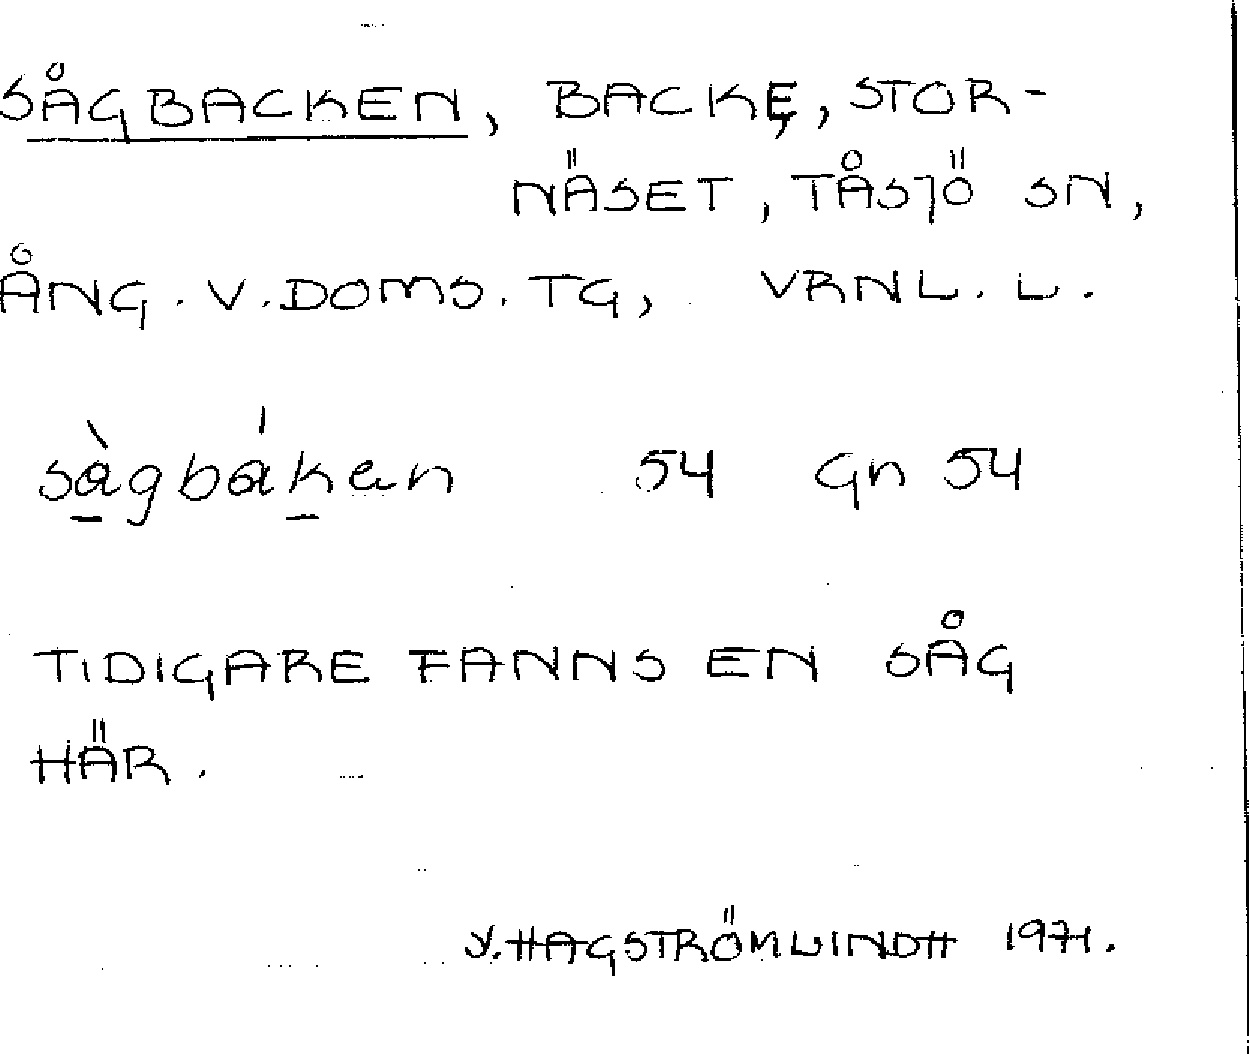 SÅGBACKEN, BACKE, STOR-
NÄSET, TÅSJÖ SN,
ÅNG. V. DOMS. TG, VRNL. L.
sàgbáken 54 Gn 54
TIDIGARE FANNS EN SÅG
HÄR.
Y. HAGSTRÖMLINDH 1971.